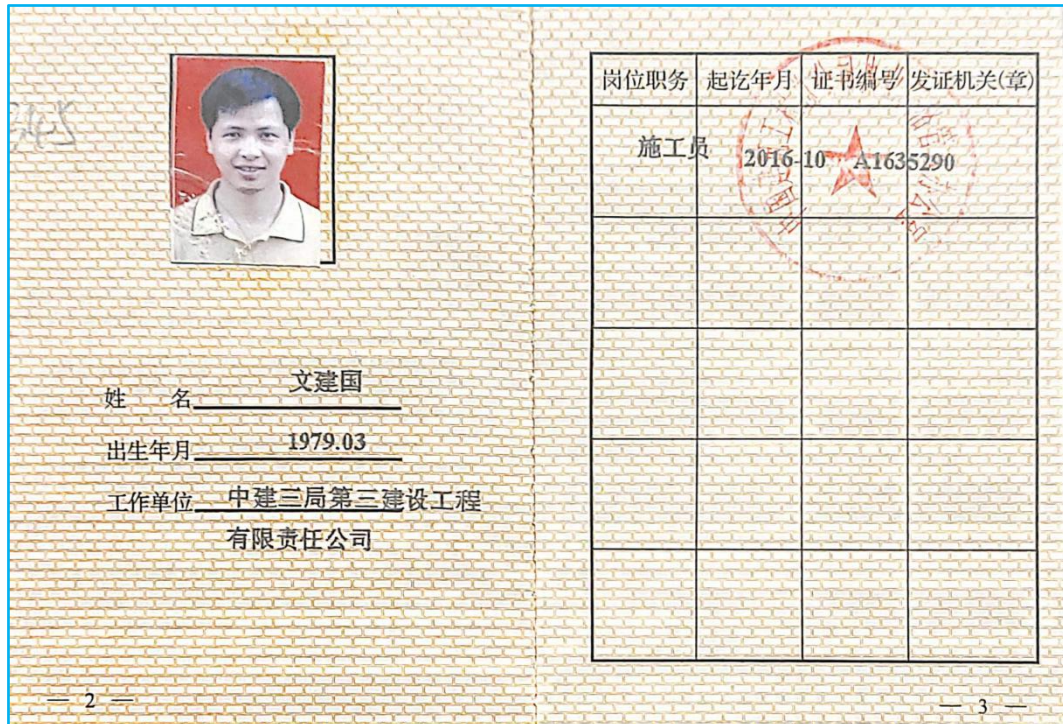 姓 名 文建国
出生年月 1979.03
工作单位 中建三局第三建设工程
有限责任公司
— 2 —
岗位职务 起讫年月 证书编号 发证机关(章)
施工员 2016-10 A1635290
— 3 —